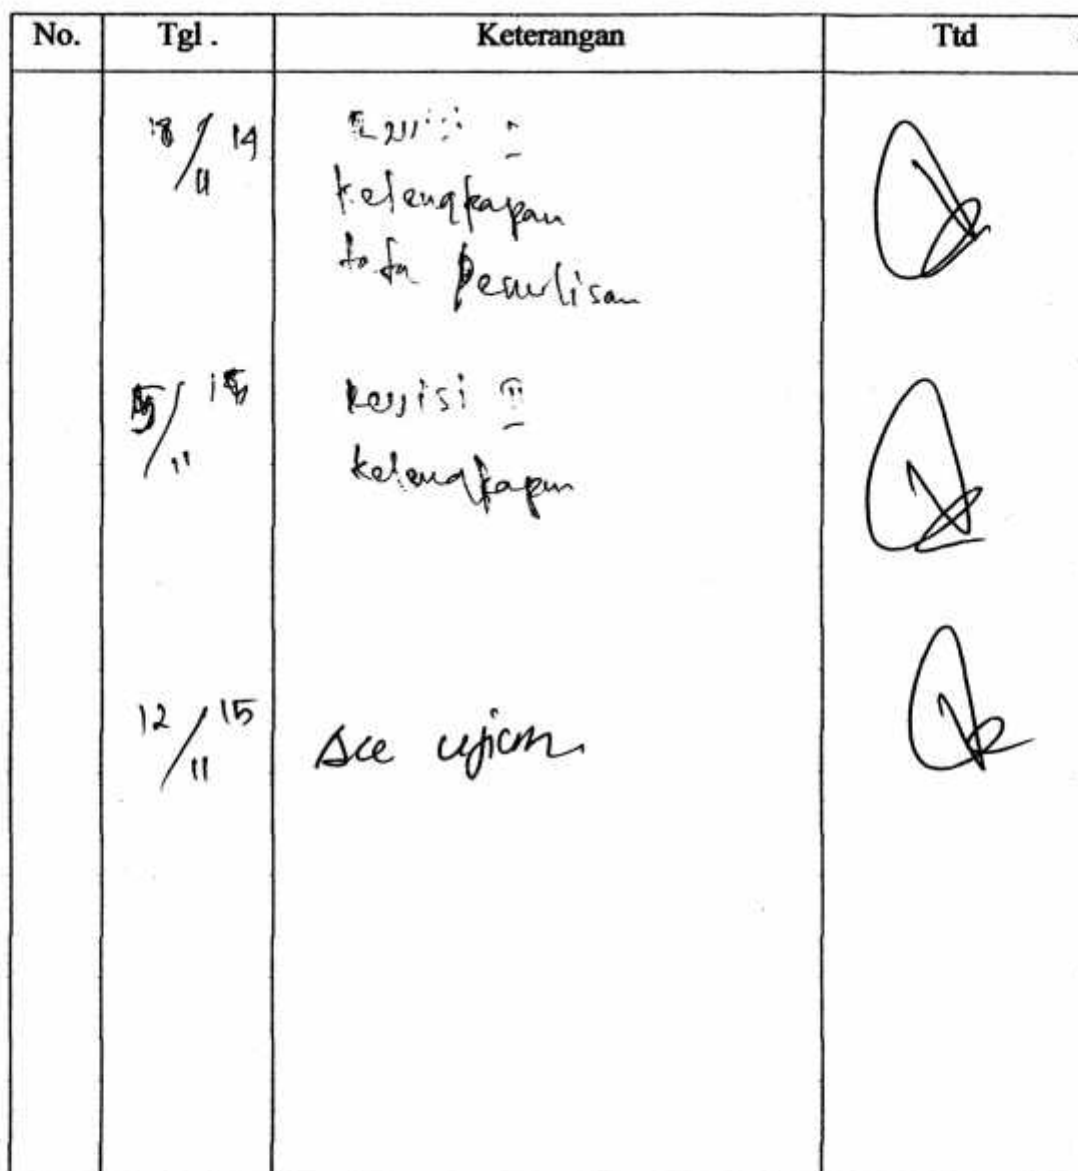 No. Tgl . Keterangan Ttd
18/11 14
kelengkapan
tata Penulisan
5/11 15 Revisi II
kelengkapan
12/11 15 Acc ujian